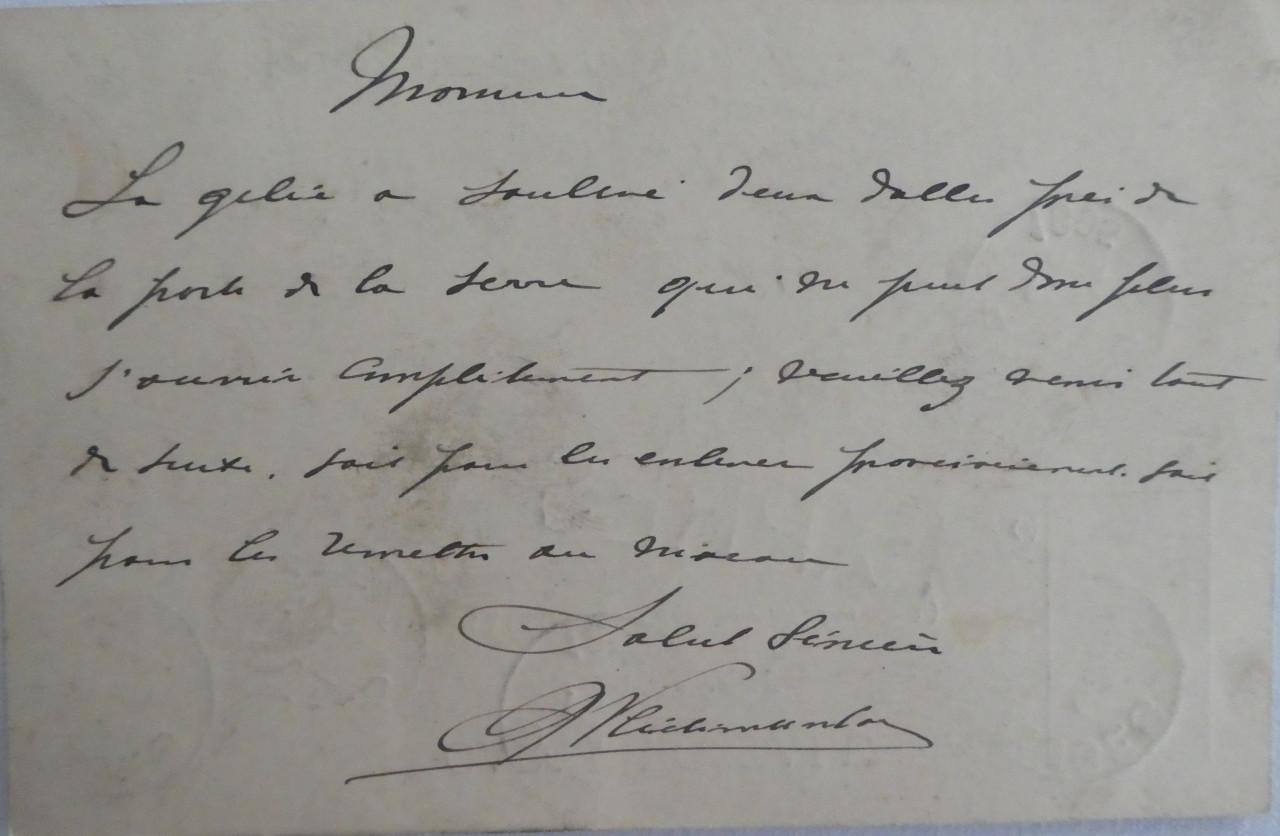 Monsieur
La gelée a soulevé deux dalles près de
la porte de la serre qui ne peut donc plus
s'ouvrir complètement ; veuillez venir tout
de suite, soit pour les enlever provisoirement soit
pour les remettre au niveau
Salut sincère